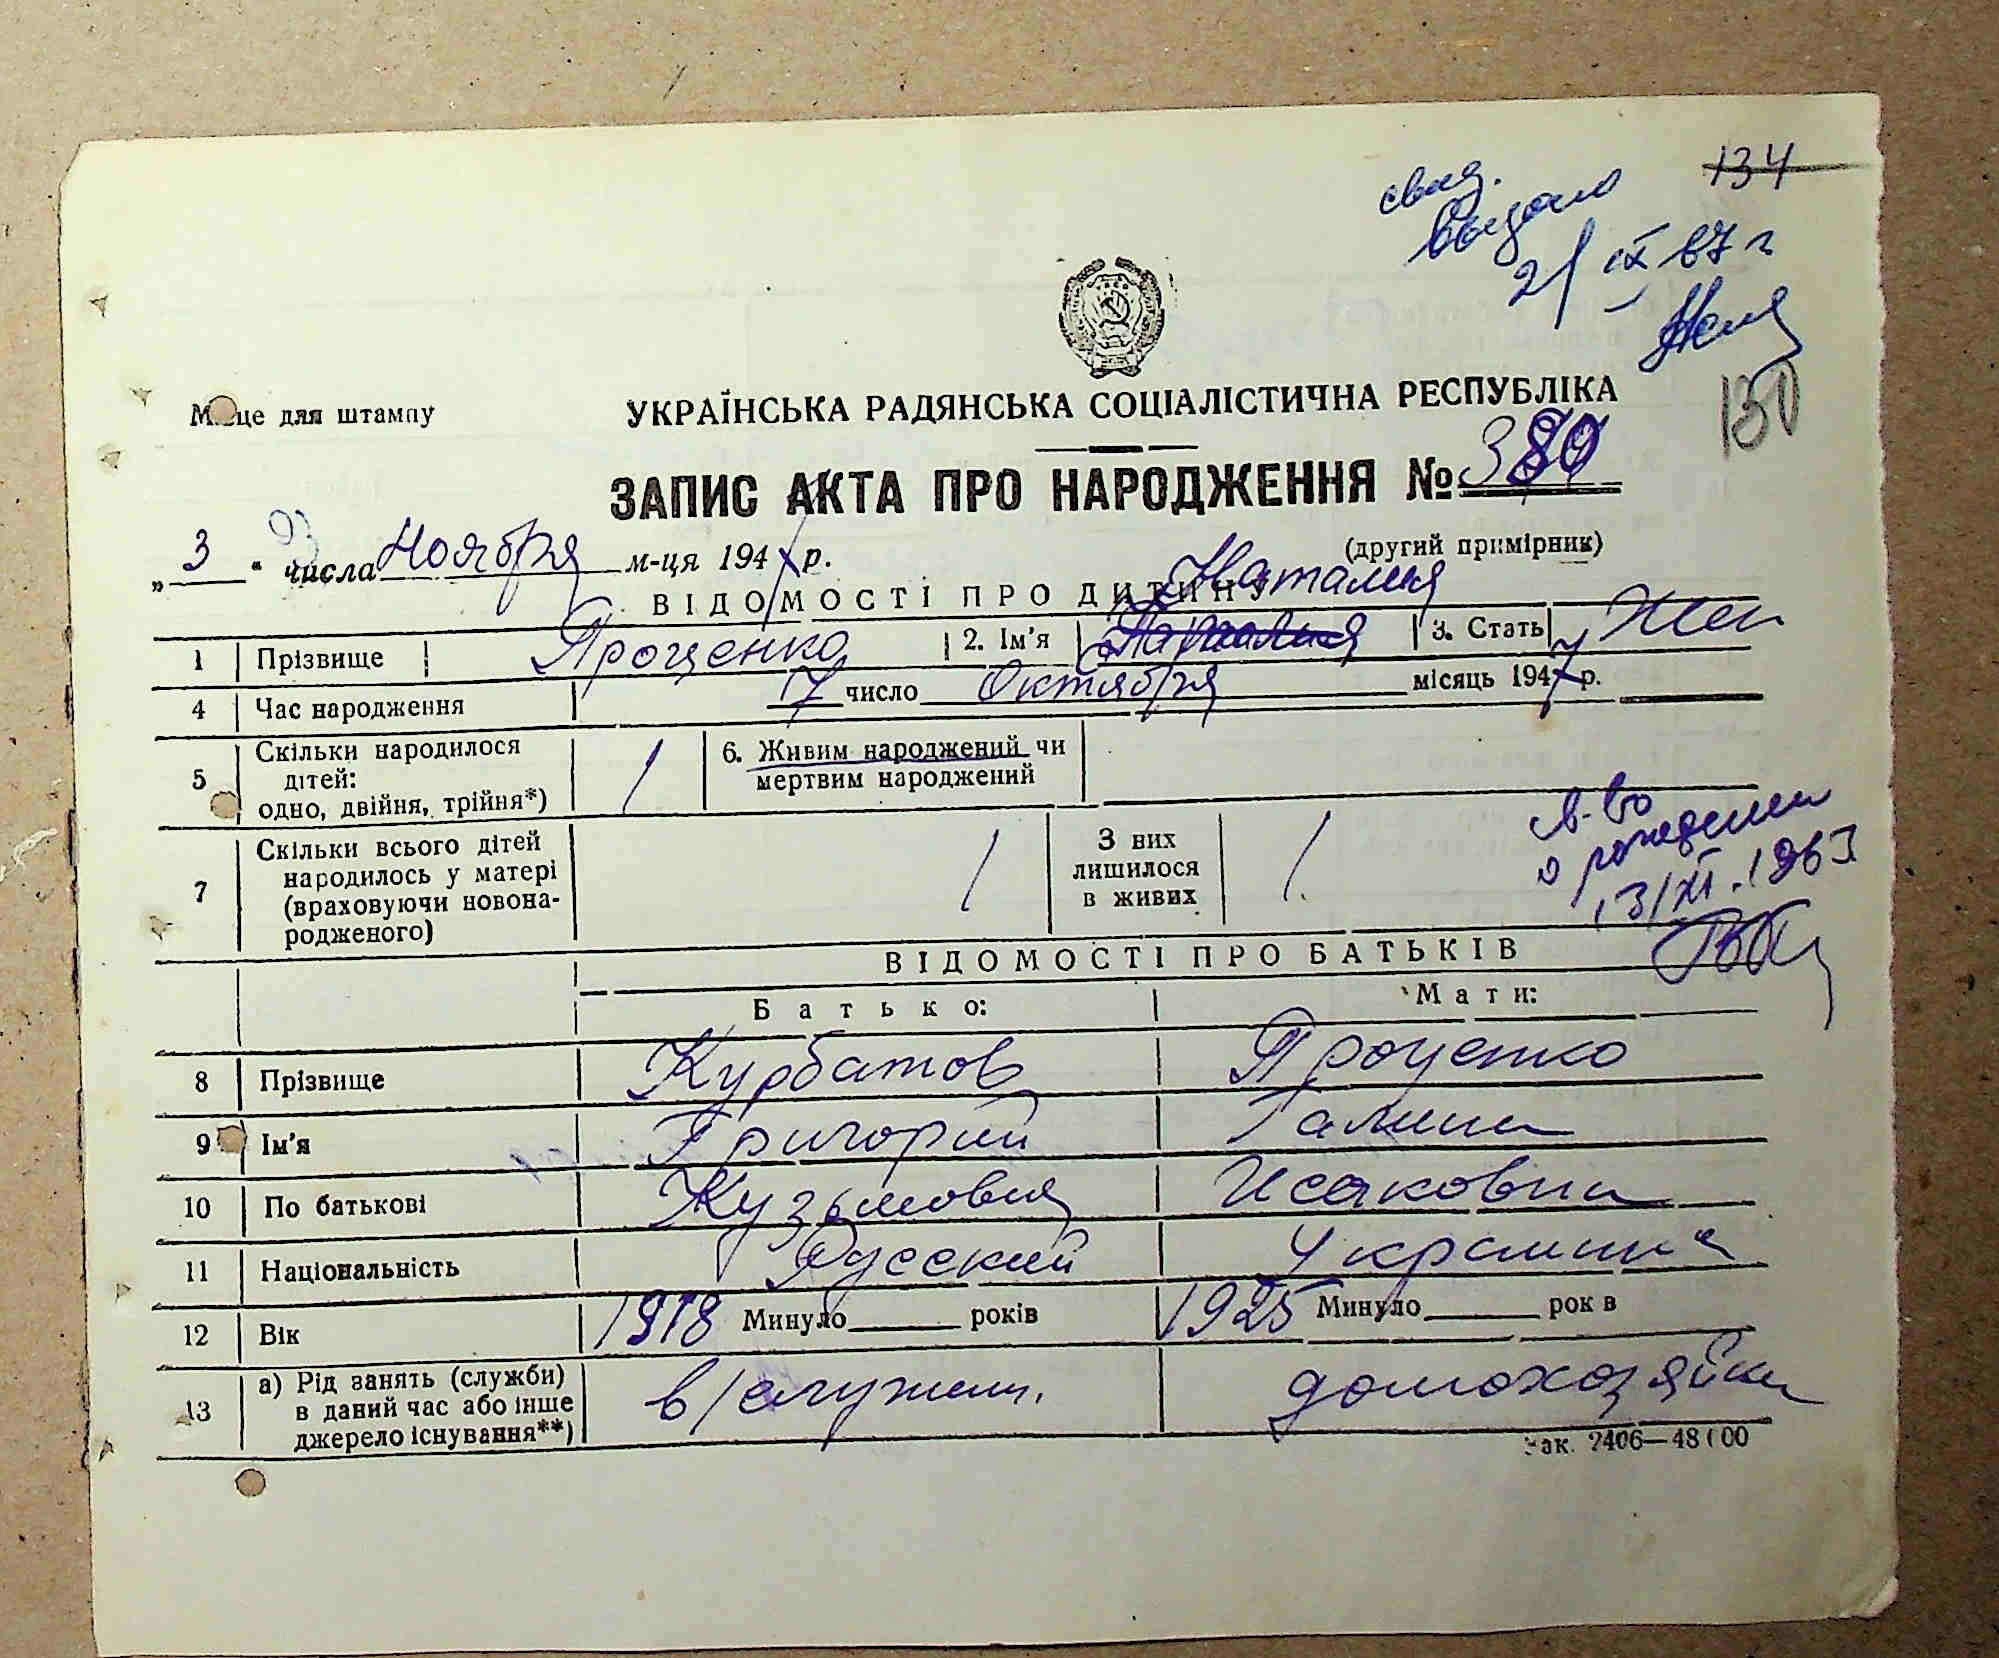 134
свид.
выдано
21/IX 67 г
Місце для штампу
УКРАЇНСЬКА РАДЯНСЬКА СОЦІАЛІСТИЧНА РЕСПУБЛІКА
130
ЗАПИС АКТА ПРО НАРОДЖЕННЯ № 380
(другий примірник)
„ 3 “ числа Ноября м-ця 1947 р.
ВІДОМОСТІ ПРО ДИТИНУ
Наталия
1 Прізвище Проценко 2. Ім'я 3. Стать Жен
4 Час народження 7 число Октября місяць 1947 р.
5 Скільки народилося дітей: одно, двійня, трійня*) 1 6. Живим народжений чи мертвим народжений
7 Скільки всього дітей народилось у матері (враховуючи новонародженого) 1 З них лишилося в живих 1
с-во
о рождении
13/XI.1963
ВІДОМОСТІ ПРО БАТЬКІВ
Батько: Мати:
8 Прізвище Курбатов Проценко
9 Ім'я Григорий Галина
10 По батькові Кузьмович Исаковна
11 Національність Русский Украинка
12 Вік 1918 Минуло років 1925 Минуло років
13 а) Рід занять (служби) в даний час або інше джерело існування**) в/служащ. домохозяйка
Зак. 2406—48000